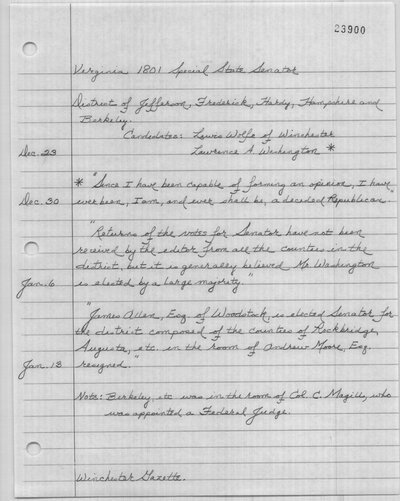 23900
Virginia 1801 Special State Senator
District of Jefferson, Frederick, Hardy, Hampshire and
Berkeley.
Candidates: Lewis Wolfe of Winchester
Dec. 23 Lawrence A. Washington *
* "Since I have been capable of forming an opinion, I have
Dec. 30 ever been, I am, and ever shall be, a decided Republican."
"Returns of the votes for Senator have not been
received by the editor from all the counties in the
district, but it is generally believed Mr. Washington
Jan. 6 is elected by a large majority."
"James Allen, Esq. of Woodstock, is elected Senator for
the district composed of the counties of Rockbridge,
Augusta, etc. in the room of Andrew Moore, Esq.
Jan. 13 resigned."
Note: Berkeley, etc was in the room of Col. C. Magill, who
was appointed a Federal Judge.
Winchester Gazette.